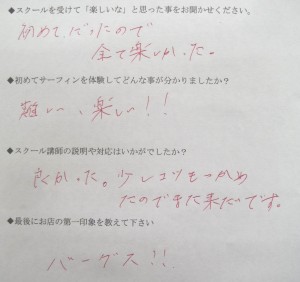 ◆スクールを受けて「楽しいな」と思った事をお聞かせください。
初めてだったので
全て楽しかった。
◆初めてサーフィンを体験してどんな事が分かりましたか？
難しい、楽しい!!
◆スクール講師の説明や対応はいかがでしたか？
良かった。少しコツもつかめ
たのでまた来たいです。
◆最後にお店の第一印象を教えて下さい
バーグス!!